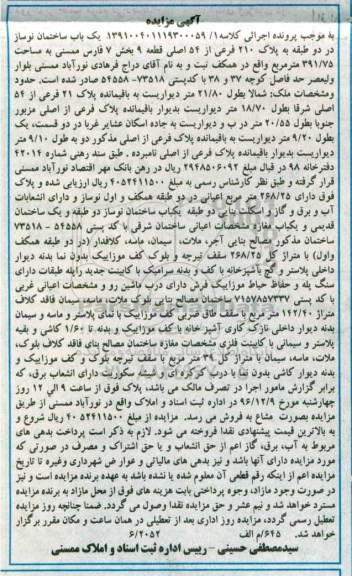 آگهی مزایده
به موجب پرونده اجرائی کلاسه۱/ ۱۳۹۱۰۰۴۰۱۱۱۹۳۰۰۰۵۹ یک باب ساختمان نوساز
در دو طبقه به پلاک ۲۱۰ فرعی از ۵۴ اصلی قطعه ۹ بخش ۷ فارس ممسنی به مساحت
۳۹۱/۷۵ مترمربع واقع در همکف نبت و به نام آقای دراج فرهادی نورآباد ممسنی بلوار
ولیعصر حد فاصل کوچه ۳۷ و ۳۸ با کدپستی ۷۳۵۱۸-۵۴۵۵۸ صادر شده است. حدود
ومشخصات ملک: شمالا بطول ۲۱/۸۰ متر دیواریست به باقیمانده پلاک ۲۱ فرعی از ۵۴
اصلی شرقا بطول ۱۸/۷۰ متر دیواریست بدیوار باقیمانده پلاک فرعی از اصلی مزبور
جنوبا بطول ۲۰/۵۵ متر درب و دیواریست به جاده اسکان عشایر غربا در دو قسمت، یک
بطول ۹/۲۰ متر دیواریست بدیوار باقیمانده پلاک فرعی از اصلی مذکور دو به طول ۹/۱۰ متر
دیواریست بدیوار باقیمانده پلاک فرعی از اصلی نامبرده . طبق سند رهنی شماره ۴۲۰۱۴
دفترخانه ۹۸ در قبال مبلغ ۲۹۴۸۵۰۶۰۹۲ ریال در رهن بانک مهر اقتصاد نورآباد ممسنی
قرار گرفته و طبق نظر کارشناس رسمی به مبلغ ۴۰۵۲۴۱۱۵۰۰ ریال ارزیابی شده و پلاک
فوق دارای ۲۶۸/۲۵ متر مربع اعیانی در دو طبقه همکف و اول نوساز و دارای انشعابات
آب و برق و گاز و اسکلت بتنی دو طبقه یکباب ساختمان نوساز دو طبقه و یک ساختمان
قدیمی و یکباب مغازه مشخصات اعیانی ساختمان شرقی با کد پستی ۵۴۵۵۸ - ۷۳۵۱۸
ساختمان مذکور مصالح بنایی آجر، ملات، سیمان، ماسه، کلافدار (در دو طبقه همکف
واول) با متراژ کل ۲۶۸/۲۵ سقف تیرچه و بلوک کف موزاییک بدون نما بدنه دیوار
داخلی پلاستر و گچ آشپزخانه با کف و بدنه سرامیک با کابینت جدید راپله طبقات دارای
سنگ پله و حفاظ حیاط موزاییک فرش دارای درب ماشین رو و مشخصات اعیانی غربی
با کد پستی ۷۱۵۷۸۵۷۳۳۷ ساختمان مصالح بنایی بلوک ملات، ماسه، سیمان فاقد کلاف
متراژ ۱۴۲/۴۰ متر مربع با سقف طاق ضربی کف موزاییک با نمای پلاستر و ماسه و سیمان
بدنه دیوار داخلی نازک کاری آشپز خانه با کف موزاییک و بدنه تا ۱/۶۰ کاشی و بقیه
پلاستر و سیمانی با کابینت فلزی مشخصات مغازه ساختمان مصالح بنای فاقد کلاف بلوک،
ملات، ماسه، سیمان با متراژ کل ۳۹ متر مربع با سقف تیرچه بلوک و کف موزاییک و
بدنه دیوار کاشی بدون نما با درب کرکره ای و شیشه سکوریت دارای انشعاب برق، که
برابر گزارش مامور اجرا در تصرف مالک می باشد، پلاک فوق از ساعت ۹ الی ۱۲ روز
چهارشنبه مورخ ۹۶/۱۲/۹ در اداره ثبت اسناد و املاک واقع در نورآباد ممسنی از طریق
مزایده بصورت مشاع به فروش می رسد. مزایده از مبلغ ۴۰۵۲۴۱۱۵۰۰ ریال شروع و
به بالاترین قیمت پیشنهادی نقدا فروخته می شود. لازم به ذکر است پرداخت بدهی های
مربوط به آب، برق، گاز اعم از حق انشعاب و یا حق اشتراک و مصرف در صورتی که
مورد مزایده دارای آنها باشد و نیز بدهی های مالیاتی و عوارض شهرداری وغیره تا تاریخ
مزایده اعم از اینکه رقم قطعی آن معلوم شده یا نشده باشد به عهده برنده مزایده است و نیز
در صورت وجود مازاد، وجوه پرداختی بابت هزینه های فوق از محل مازاد به برنده مزایده
مسترد خواهد شد و نیم عشر و حق مزایده نقدا وصول می گردد. ضمنا چنانچه روز مزایده
تعطیل رسمی گردد، مزایده روز اداری بعد از تعطیلی در همان ساعت و مکان مقرر برگزار
خواهد شد. ۶۴۵/م الف ۶/۲۰۵۲
سیدمصطفی حسینی - رییس اداره ثبت اسناد و املاک ممسنی